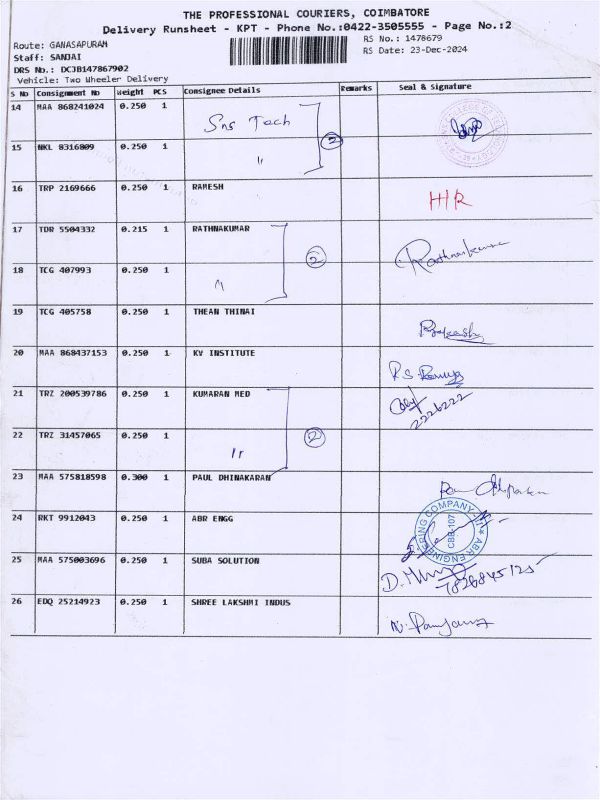 THE PROFESSIONAL COURIERS, COIMBATORE
Delivery Runsheet - KPT - Phone No.:0422-3505555 - Page No.:2
Route: GANASAPURAM
RS No.: 1478679
Staff: SANJAI
RS Date: 23-Dec-2024
DRS No.: DCJB147867902
Vehicle: Two Wheeler Delivery
S No Consignment No Weight PCS Consignee Details Remarks Seal & Signature
14 MAA 868241024 0.250 1 Sns Tech
2
15 NKL 8316809 0.250 1 "
16 TRP 2169666 0.250 1 RAMESH HR
17 TDR 5504332 0.215 1 RATHNAKUMAR Rathnakumar
2
18 TCG 407993 0.250 1 "
19 TCG 405758 0.250 1 THEAN THINAI Prakash
20 MAA 868437153 0.250 1 KV INSTITUTE R.S. Ramya
21 TRZ 200539786 0.250 1 KUMARAN MED 2226222
2
22 TRZ 31457065 0.250 1 "
23 MAA 575818598 0.300 1 PAUL DHINAKARAN
24 RKT 9912043 0.250 1 ABR ENGG ABR ENGINEERING COMPANY CBE-107
25 MAA 575003696 0.250 1 SUBA SOLUTION
26 EDQ 25214923 0.250 1 SHREE LAKSHMI INDUS